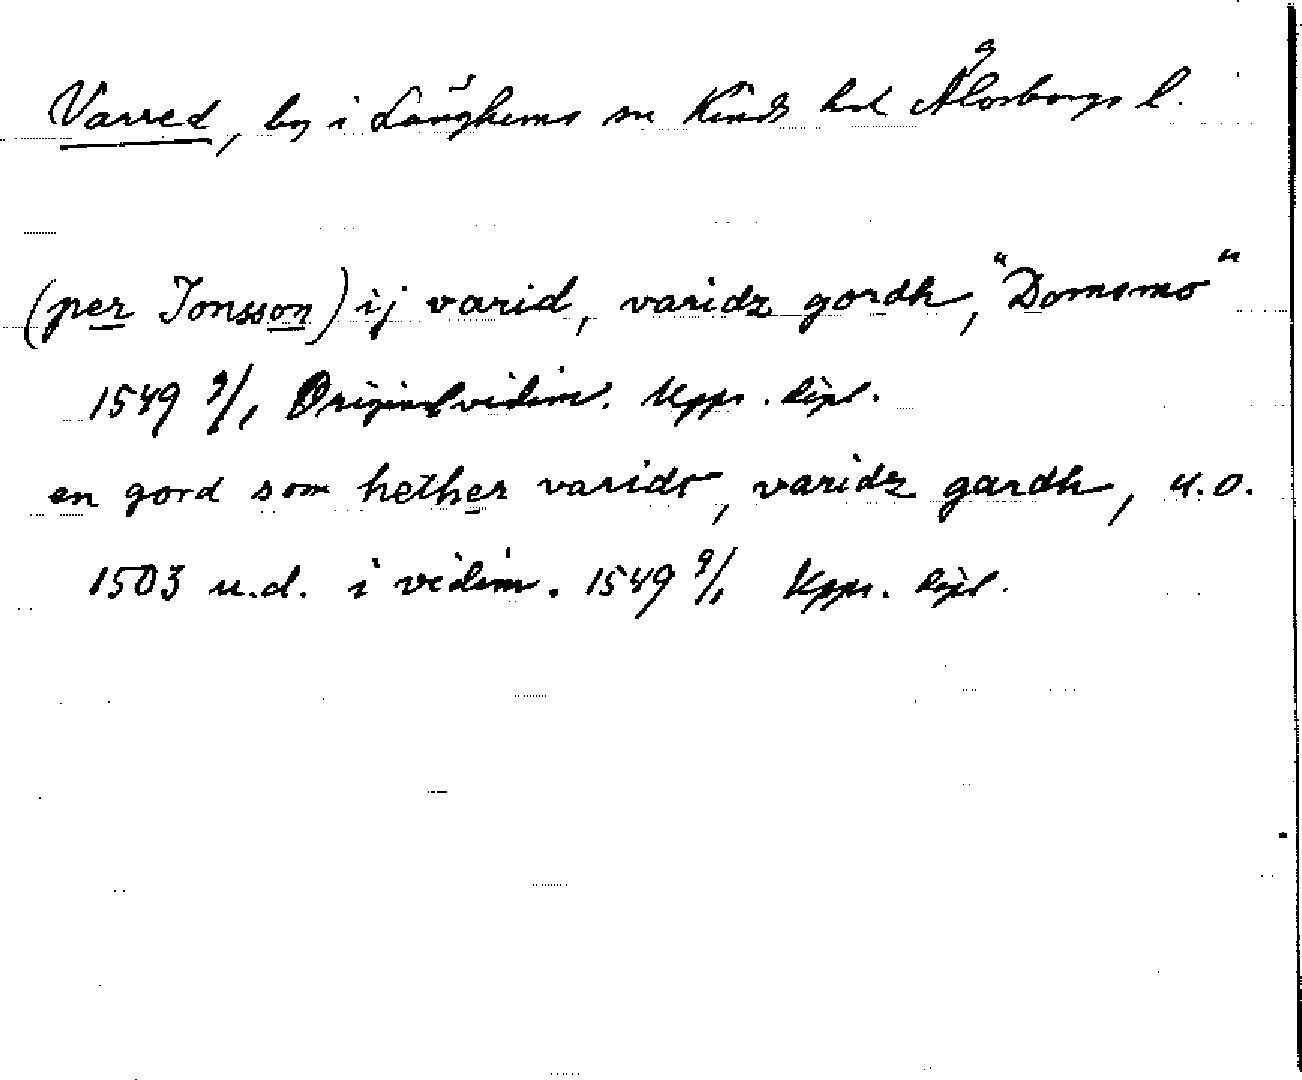 Varred, by i Länghems sn Kinds hd Älvsborgs l.
(per Jonsson) ij varid, varidz gordh, "Domsmo"
1549 9/1 Originalvidim. Upps. dipl.
en gord som hether varidz, varidz gardh, u.o.
1503 u.d. i vidim. 1549 9/1 Upps. dipl.